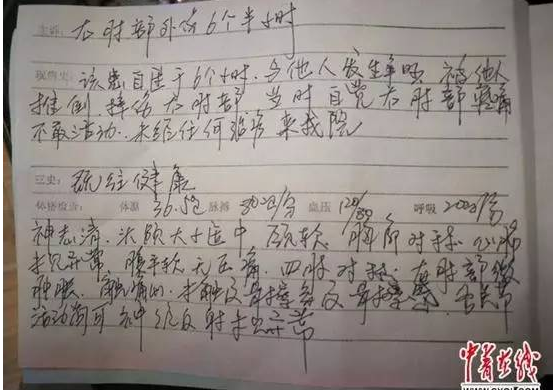 主诉: 右肘部外伤6个半小时
现病史: 该患自述于6个小时. 与他人发生争吵 被他人
推倒 摔伤右肘部 当时自觉右肘部疼痛
不敢活动. 未经任何治疗 来我院
三史: 既往健康
体格检查: 体温 36.5℃ 脉搏 80次/分 血压 120/80 呼吸 20次/分
神志清. 头颅大小适中 颈软. 胸廓对称. 心肺
未见异常 腹平软 无压痛. 四肢对称. 右肘部
肿胀. 未触及骨擦音及骨擦感. 关节
活动尚可 神经反射未见异常
中青在线